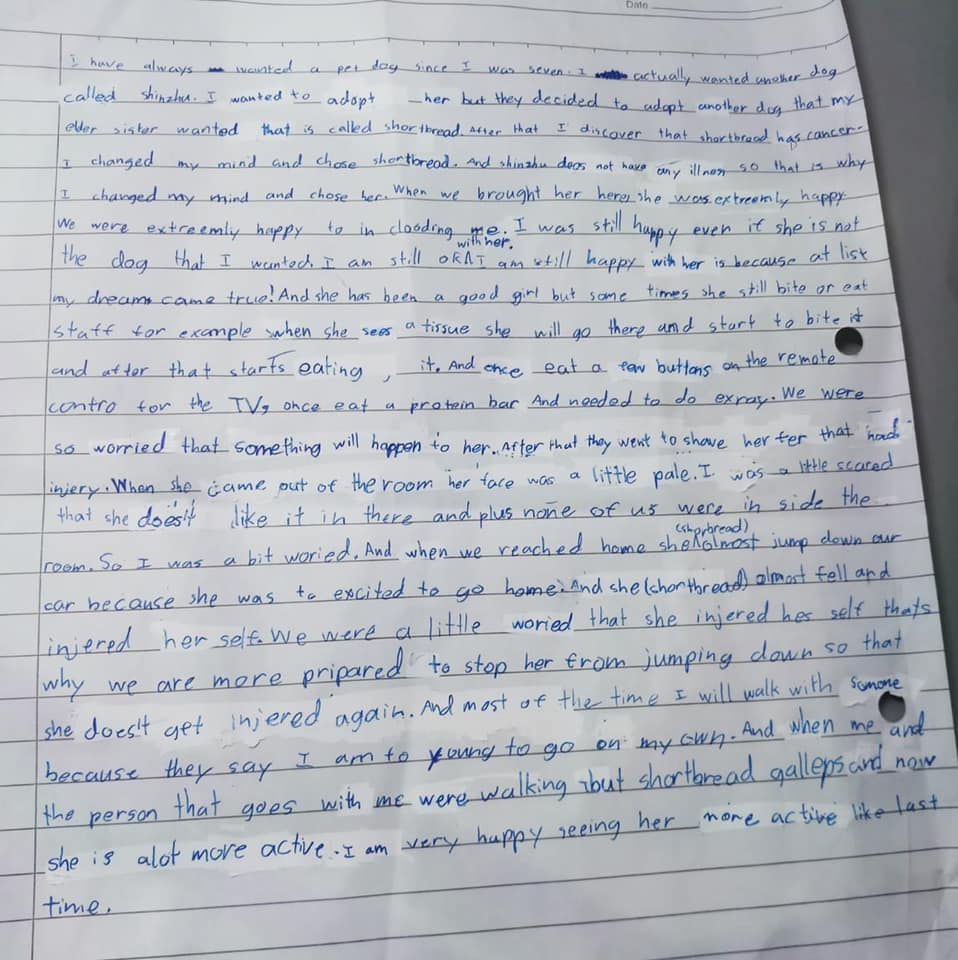 Date
I have always wanted a pet dog since I was seven. I actually wanted another dog
called shinzhu. I wanted to adopt her but they decided to adopt another dog that my
elder sister wanted that is called shortbread. After that I discover that shortbread has cancer.
I changed my mind and chose shortbread. And shinzhu does not have any illness so that is why
I changed my mind and chose her. When we brought her here, she was extreemly happy.
We were extreemly happy to in clooding me. I was still happy even if she is not
the dog that I wanted. I am still ok with her. I am still happy with her is because at list
my dreams came true! And she has been a good girl but some times she still bite or eat
staff for example when she sees a tissue she will go there and start to bite it
and after that starts eating, it. And once eat a few buttons on the remote
contro for the TV, once eat a protein bar And needed to do exray. We were
so worried that something will happen to her. After that they went to shave her fer that had
injery. When she came out of the room her face was a little pale. I was a little scared
that she does't like it in there and plus none of us were in side the
room. So I was a bit woried. And when we reached home she (shorbread) almost jump down our
car because she was to excited to go home. And she (shorthread) almost fell and
injered her self. We were a little woried that she injered her self thats
why we are more pripared to stop her from jumping down so that
she does't get injered again. And most of the time I will walk with somone
because they say I am to young to go on my own. And when me and
the person that goes with me were walking but shortbread galleps and now
she is alot more active. I am very happy seeing her more active like last
time.